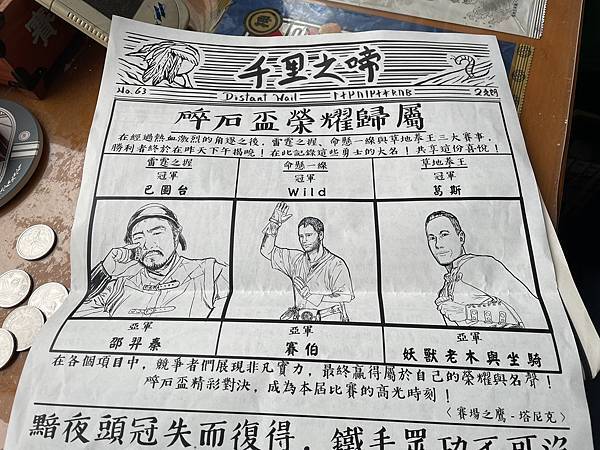 千里之啼
No. 63
Distant Wail
碎石盃榮耀歸屬
在經過熱血激烈的角逐之後，雷霆之握、命懸一線與草地拳王三大賽事，
勝利者終於在昨天下午揭曉！在此記錄這些勇士的大名！共享這份喜悅！
雷霆之握 命懸一線 草地拳王
冠軍 冠軍 冠軍
巴圖台 Wild 葛斯
亞軍 亞軍 亞軍
邵羿桑 賽伯 妖獸老木與坐騎
在各個項目中，競爭者們展現非凡實力，最終贏得屬於自己的榮耀與名聲！
碎石盃精彩對決，成為本屆比賽的高光時刻！
〈賽場之鷹-塔尼克〉
黯夜頭冠失而復得，鐵手眾功不可沒